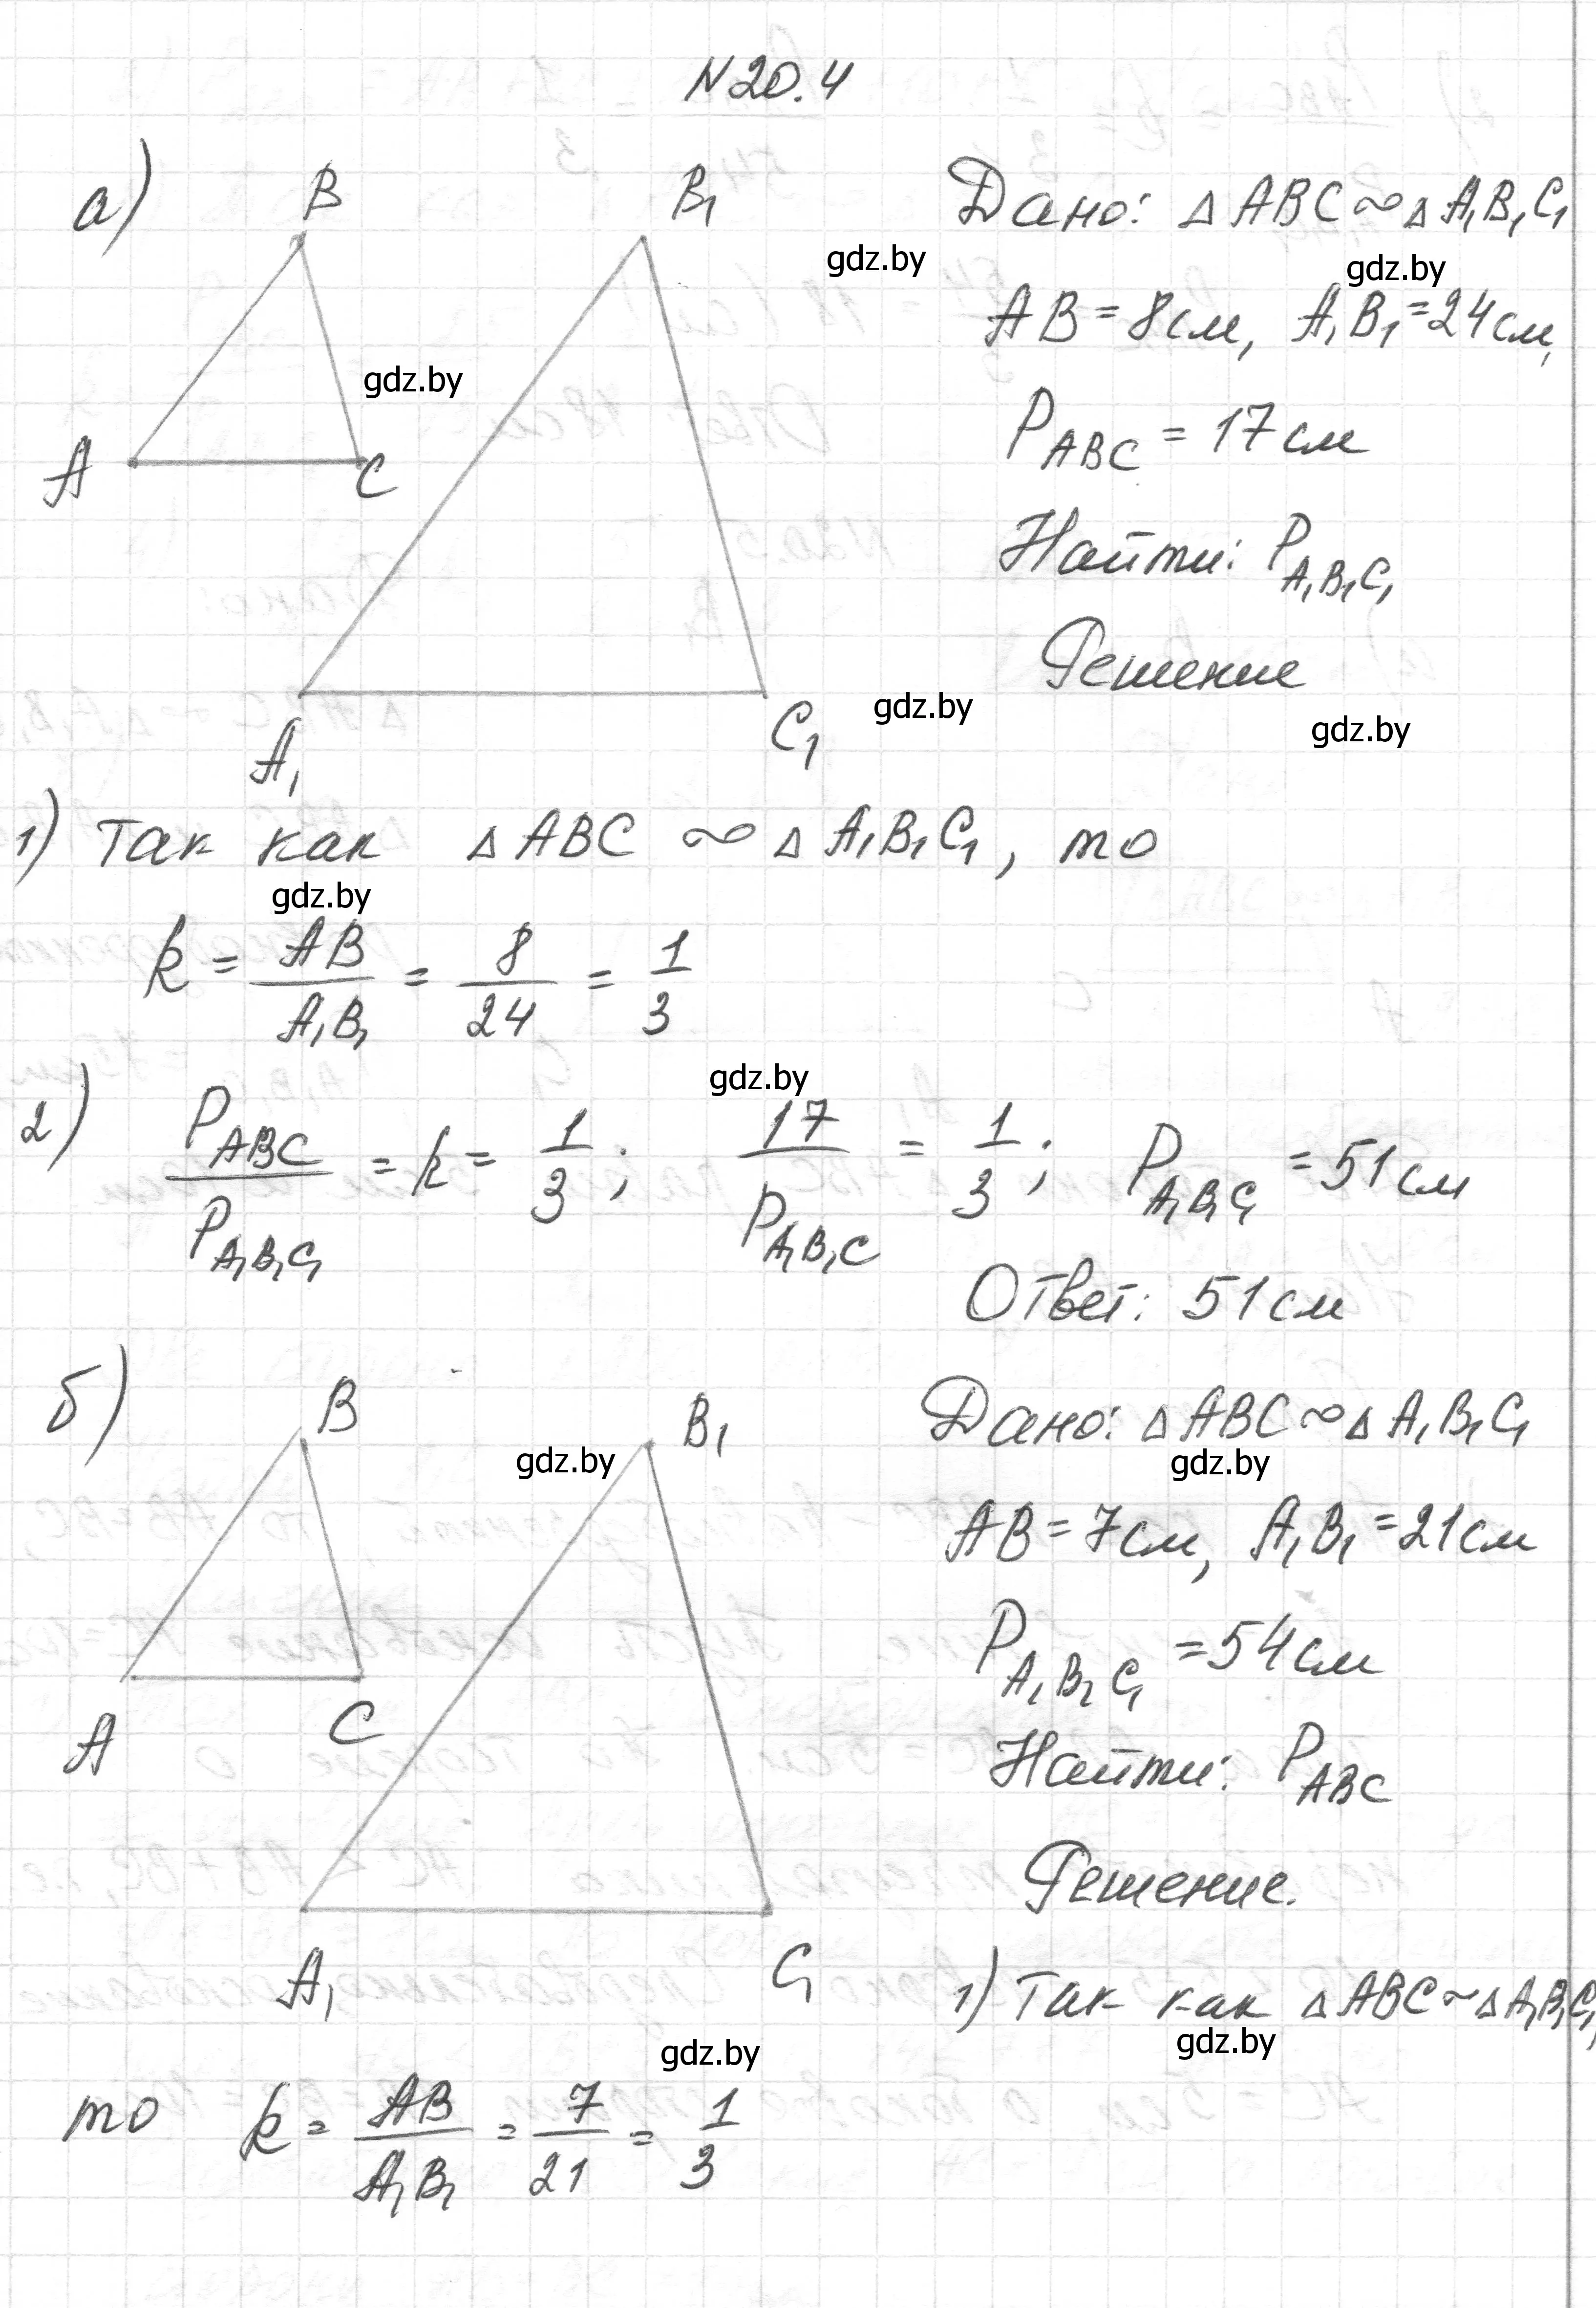 N 20.4
а)
B
B₁
A
C
A₁
C₁
Дано: △ABC ∾ △A₁B₁C₁
gdz.by
gdz.by
AB = 8см, A₁B₁ = 24см,
gdz.by
P_ABC = 17см
Найти: P_A₁B₁C₁
Решение
gdz.by
gdz.by
1) Так как △ABC ∾ △A₁B₁C₁, то
gdz.by
k = AB/A₁B₁ = 8/24 = 1/3
gdz.by
2) P_ABC/P_A₁B₁C₁ = k = 1/3; 17/P_A₁B₁C = 1/3; P_A₁B₁C₁ = 51см
Ответ: 51см
б)
B
B₁
A
C
A₁
C₁
Дано: △ABC ∾ △A₁B₁C₁
gdz.by
gdz.by
AB = 7см, A₁B₁ = 21см
P_A₁B₁C₁ = 54см
Найти: P_ABC
Решение.
1) Так как △ABC ~ △A₁B₁C₁
gdz.by
gdz.by
то k = AB/A₁B₁ = 7/21 = 1/3